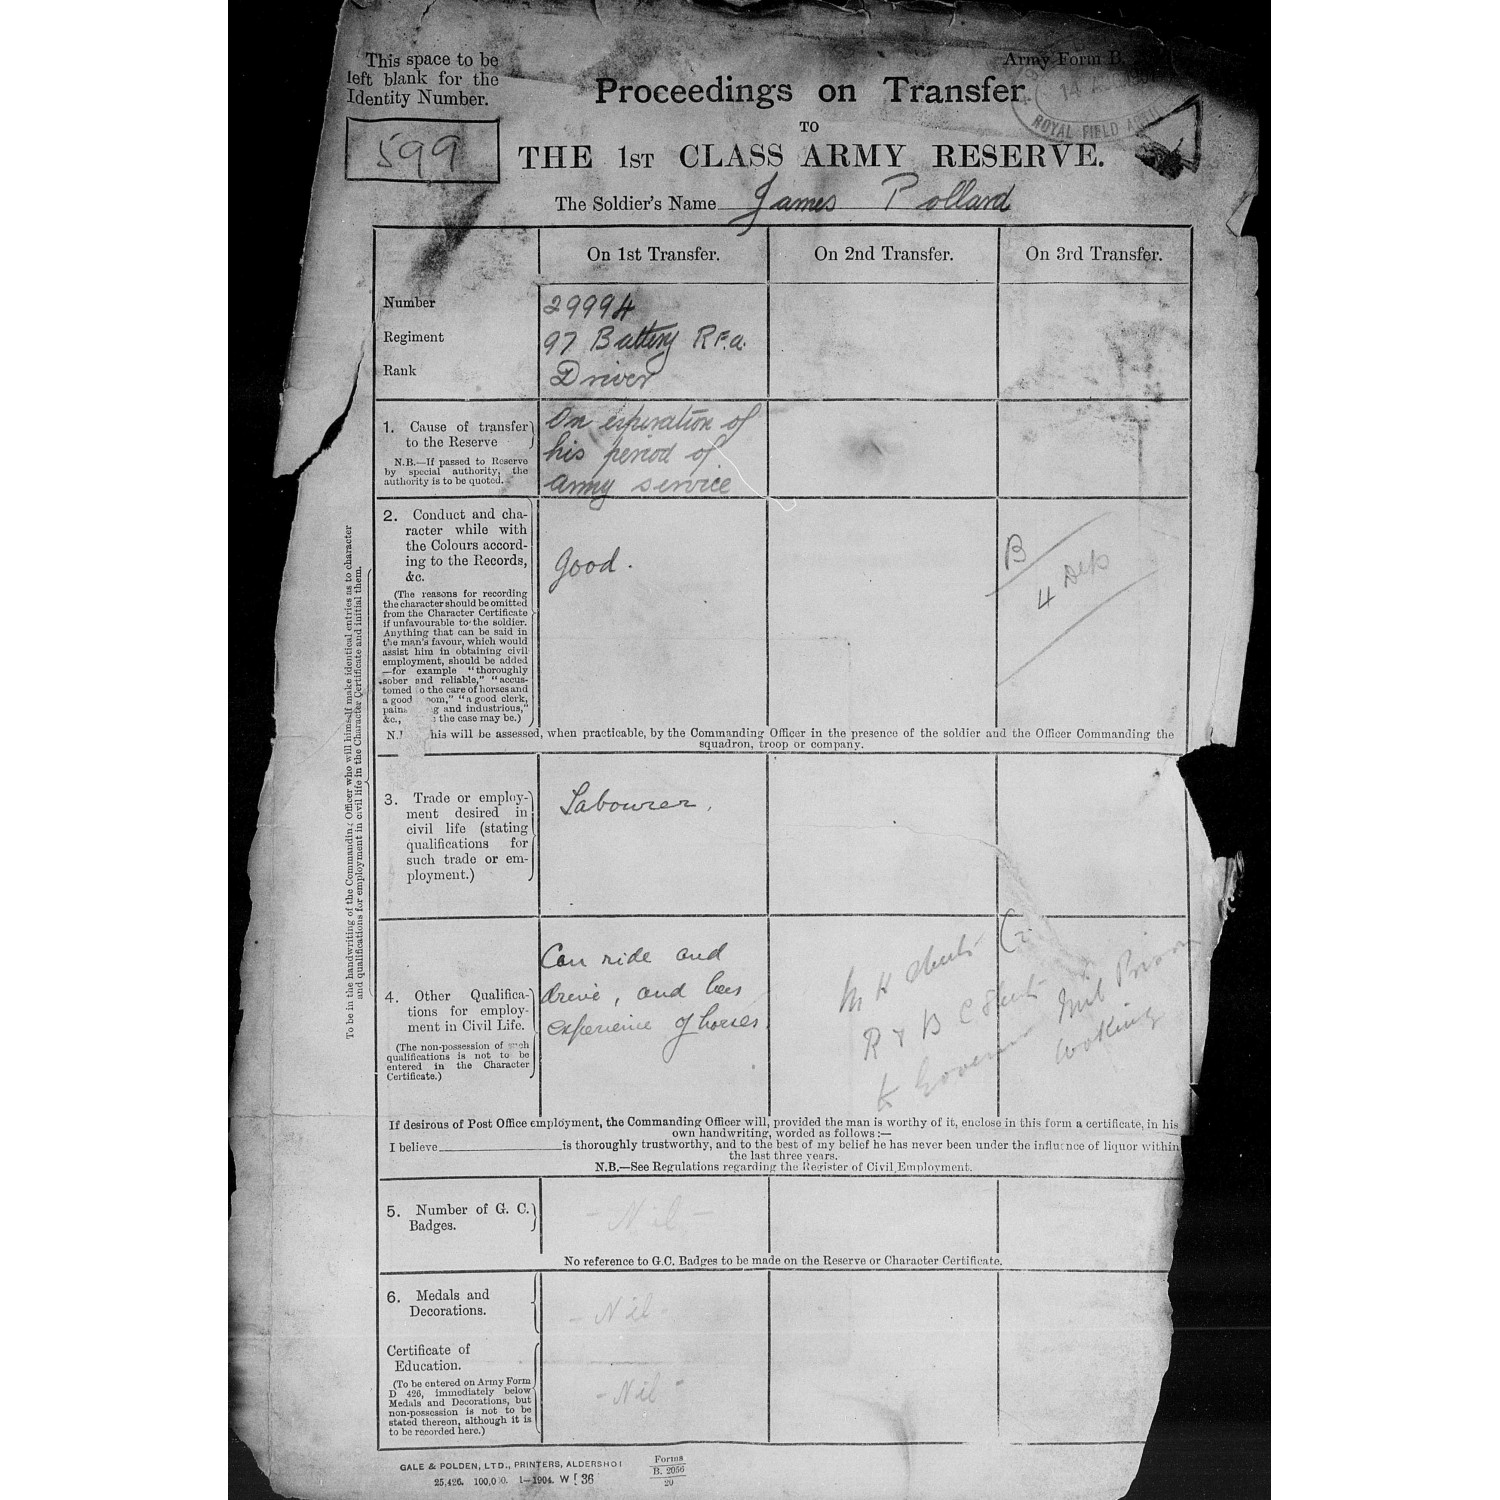 This space to be
left blank for the
Identity Number.
599
Army Form B.
14
ROYAL FIELD
Proceedings on Transfer
TO
THE 1ST CLASS ARMY RESERVE.
The Soldier's Name James Pollard
On 1st Transfer. On 2nd Transfer. On 3rd Transfer.
Number 29994
Regiment 97 Battery R.F.a.
Rank Driver
1. Cause of transfer
to the Reserve
N.B.—If passed to Reserve
by special authority, the
authority is to be quoted.
On expiration of
his period of
army service
2. Conduct and cha-
racter while with
the Colours accord-
ing to the Records,
&c.
(The reasons for recording
the character should be omitted
from the Character Certificate
if unfavourable to the soldier.
Anything that can be said in
the man's favour, which would
assist him in obtaining civil
employment, should be added
—for example "thoroughly
sober and reliable," "accus-
tomed o the care of horses and
a good oom," "a good clerk,
pain g and industrious,"
&c., the case may be.)
Good.
B
4 Dep
N. his will be assessed, when practicable, by the Commanding Officer in the presence of the soldier and the Officer Commanding the
squadron, troop or company.
To be in the handwriting of the Commanding Officer who will himself make identical entries as to character
and qualifications for employment in civil life in the Character Certificate and initial them.
3. Trade or employ-
ment desired in
civil life (stating
qualifications for
such trade or em-
ployment.)
Labourer.
4. Other Qualifica-
tions for employ-
ment in Civil Life.
(The non-possession of such
qualifications is not to be
entered in the Character
Certificate.)
Can ride and
drive, and has
experience of horses
M H Sheets
R & B C Sheets
Governor Mil Prison
Woking
If desirous of Post Office employment, the Commanding Officer will, provided the man is worthy of it, enclose in this form a certificate, in his
own handwriting, worded as follows:—
I believe is thoroughly trustworthy, and to the best of my belief he has never been under the influence of liquor within
the last three years.
N.B.—See Regulations regarding the Register of Civil Employment.
5. Number of G. C.
Badges.
- Nil -
No reference to G.C. Badges to be made on the Reserve or Character Certificate.
6. Medals and
Decorations.
- Nil -
Certificate of
Education.
(To be entered on Army Form
D 426, immediately below
Medals and Decorations, but
non-possession is not to be
stated thereon, although it is
to be recorded here.)
- Nil -
GALE & POLDEN, LTD., PRINTERS, ALDERSHOT
25,426. 100,000. 1—1904. W [ 36
Forms
B. 2056
20